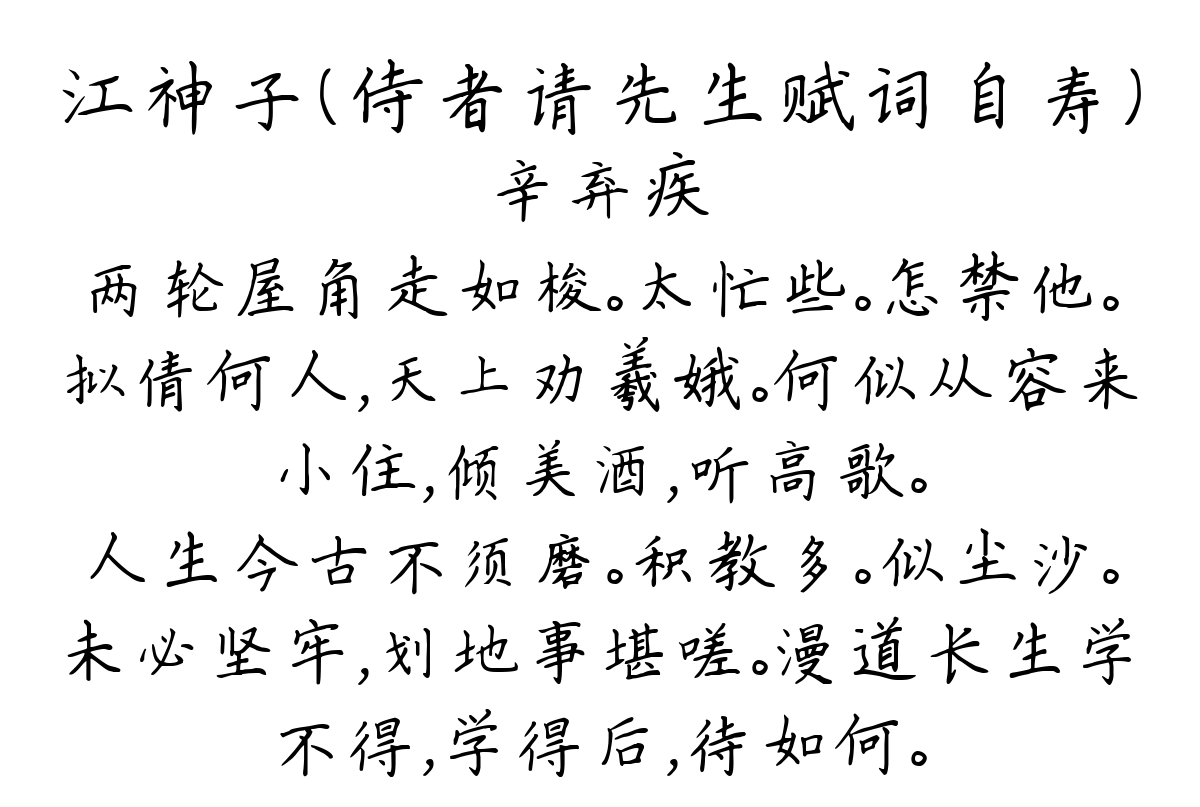 江神子(侍者请先生赋词自寿)
辛弃疾
两轮屋角走如梭。太忙些。怎禁他。
拟倩何人,天上劝羲娥。何似从容来
小住,倾美酒,听高歌。
人生今古不须磨。积教多。似尘沙。
未必坚牢,划地事堪嗟。漫道长生学
不得,学得后,待如何。